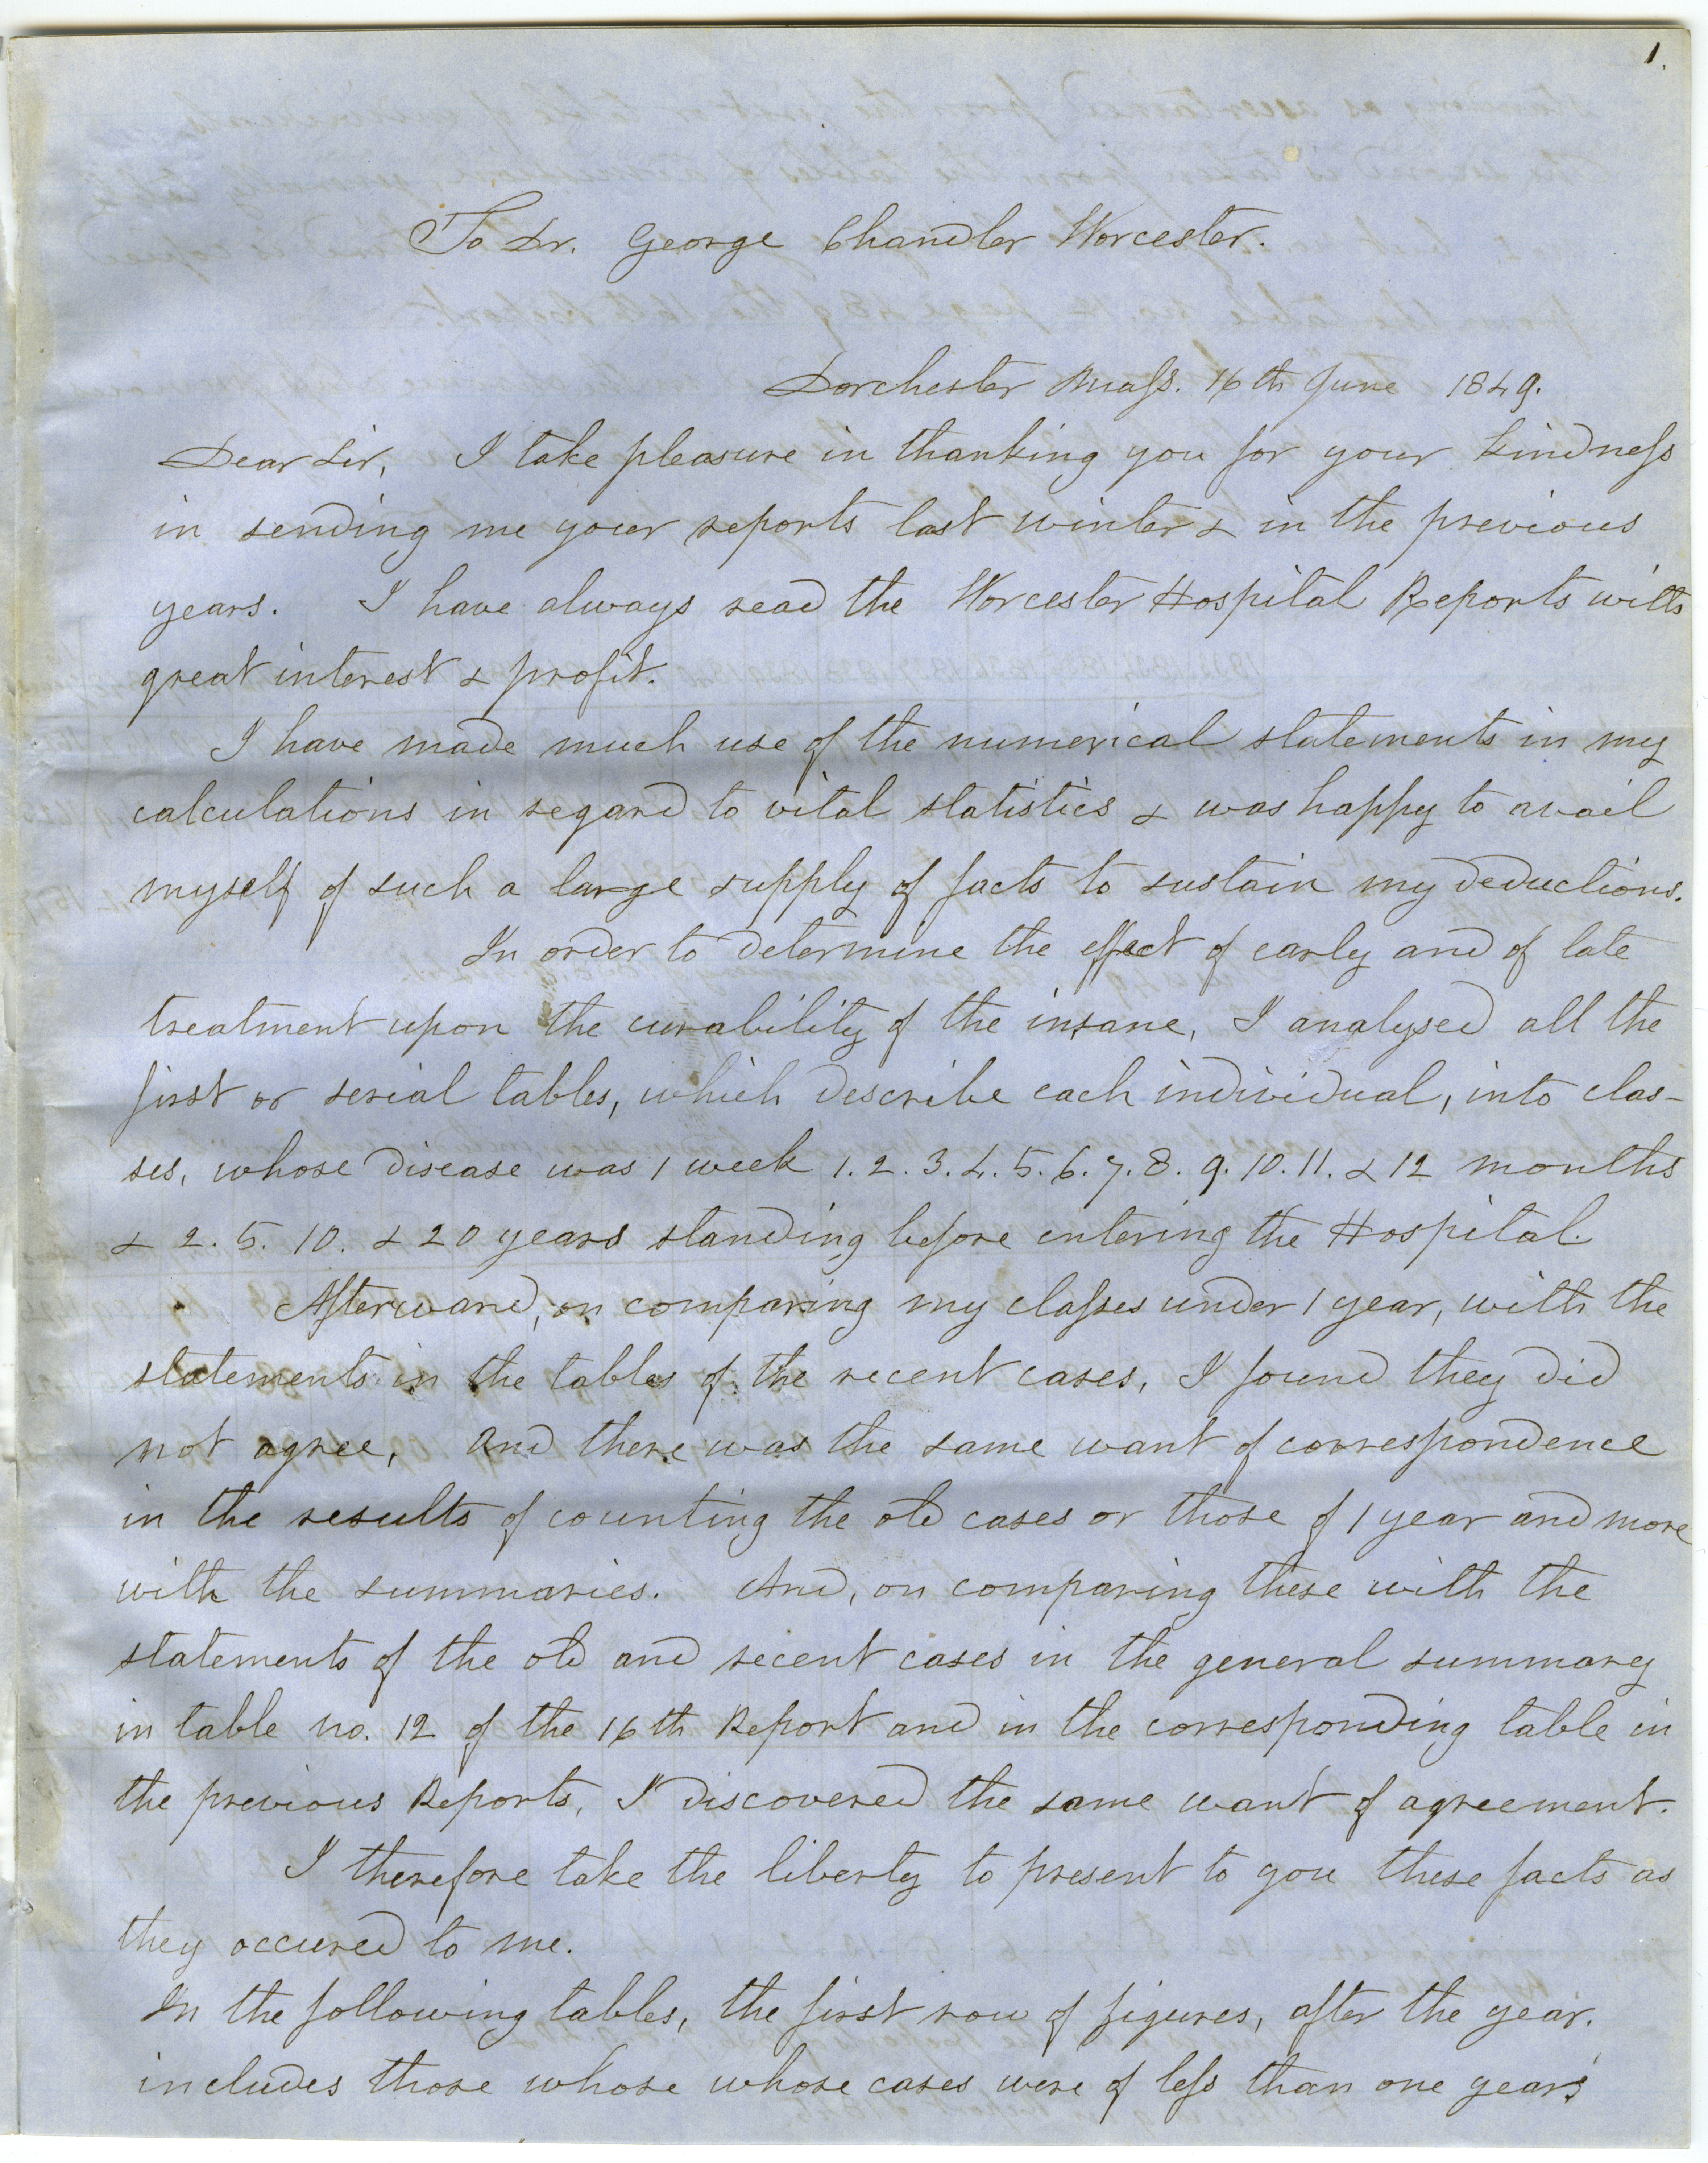 1.
To Dr. George Chandler Worcester.
Dorchester Mass. 16th June 1849.
Dear Sir, I take pleasure in thanking you for your kindness
in sending me your reports last winter & in the previous
years. I have always read the Worcester Hospital Reports with
great interest & profit.
I have made much use of the numerical statements in my
calculations in regard to vital statistics & was happy to avail
myself of such a large supply of facts to sustain my deductions.
In order to determine the effect of early and of late
treatment upon the curability of the insane, I analysed all the
first or serial tables, which describe each individual, into clas-
ses, whose disease was 1 week 1. 2. 3. 4. 5. 6. 7. 8. 9. 10. 11. & 12 months
& 2. 5. 10. & 20 years standing before entering the Hospital.
Afterward, on comparing my classes under 1 year, with the
statements in the tables of the recent cases, I found they did
not agree, and there was the same want of correspondence
in the results of counting the old cases or those of 1 year and more
with the summaries. And, on comparing these with the
statements of the old and recent cases in the general summary
in table no. 12 of the 16th Report and in the corresponding table in
the previous Reports, I discovered the same want of agreement.
I therefore take the liberty to present to you these facts as
they occured to me.
In the following tables, the first row of figures, after the year,
includes those whose whose cases were of less than one year's